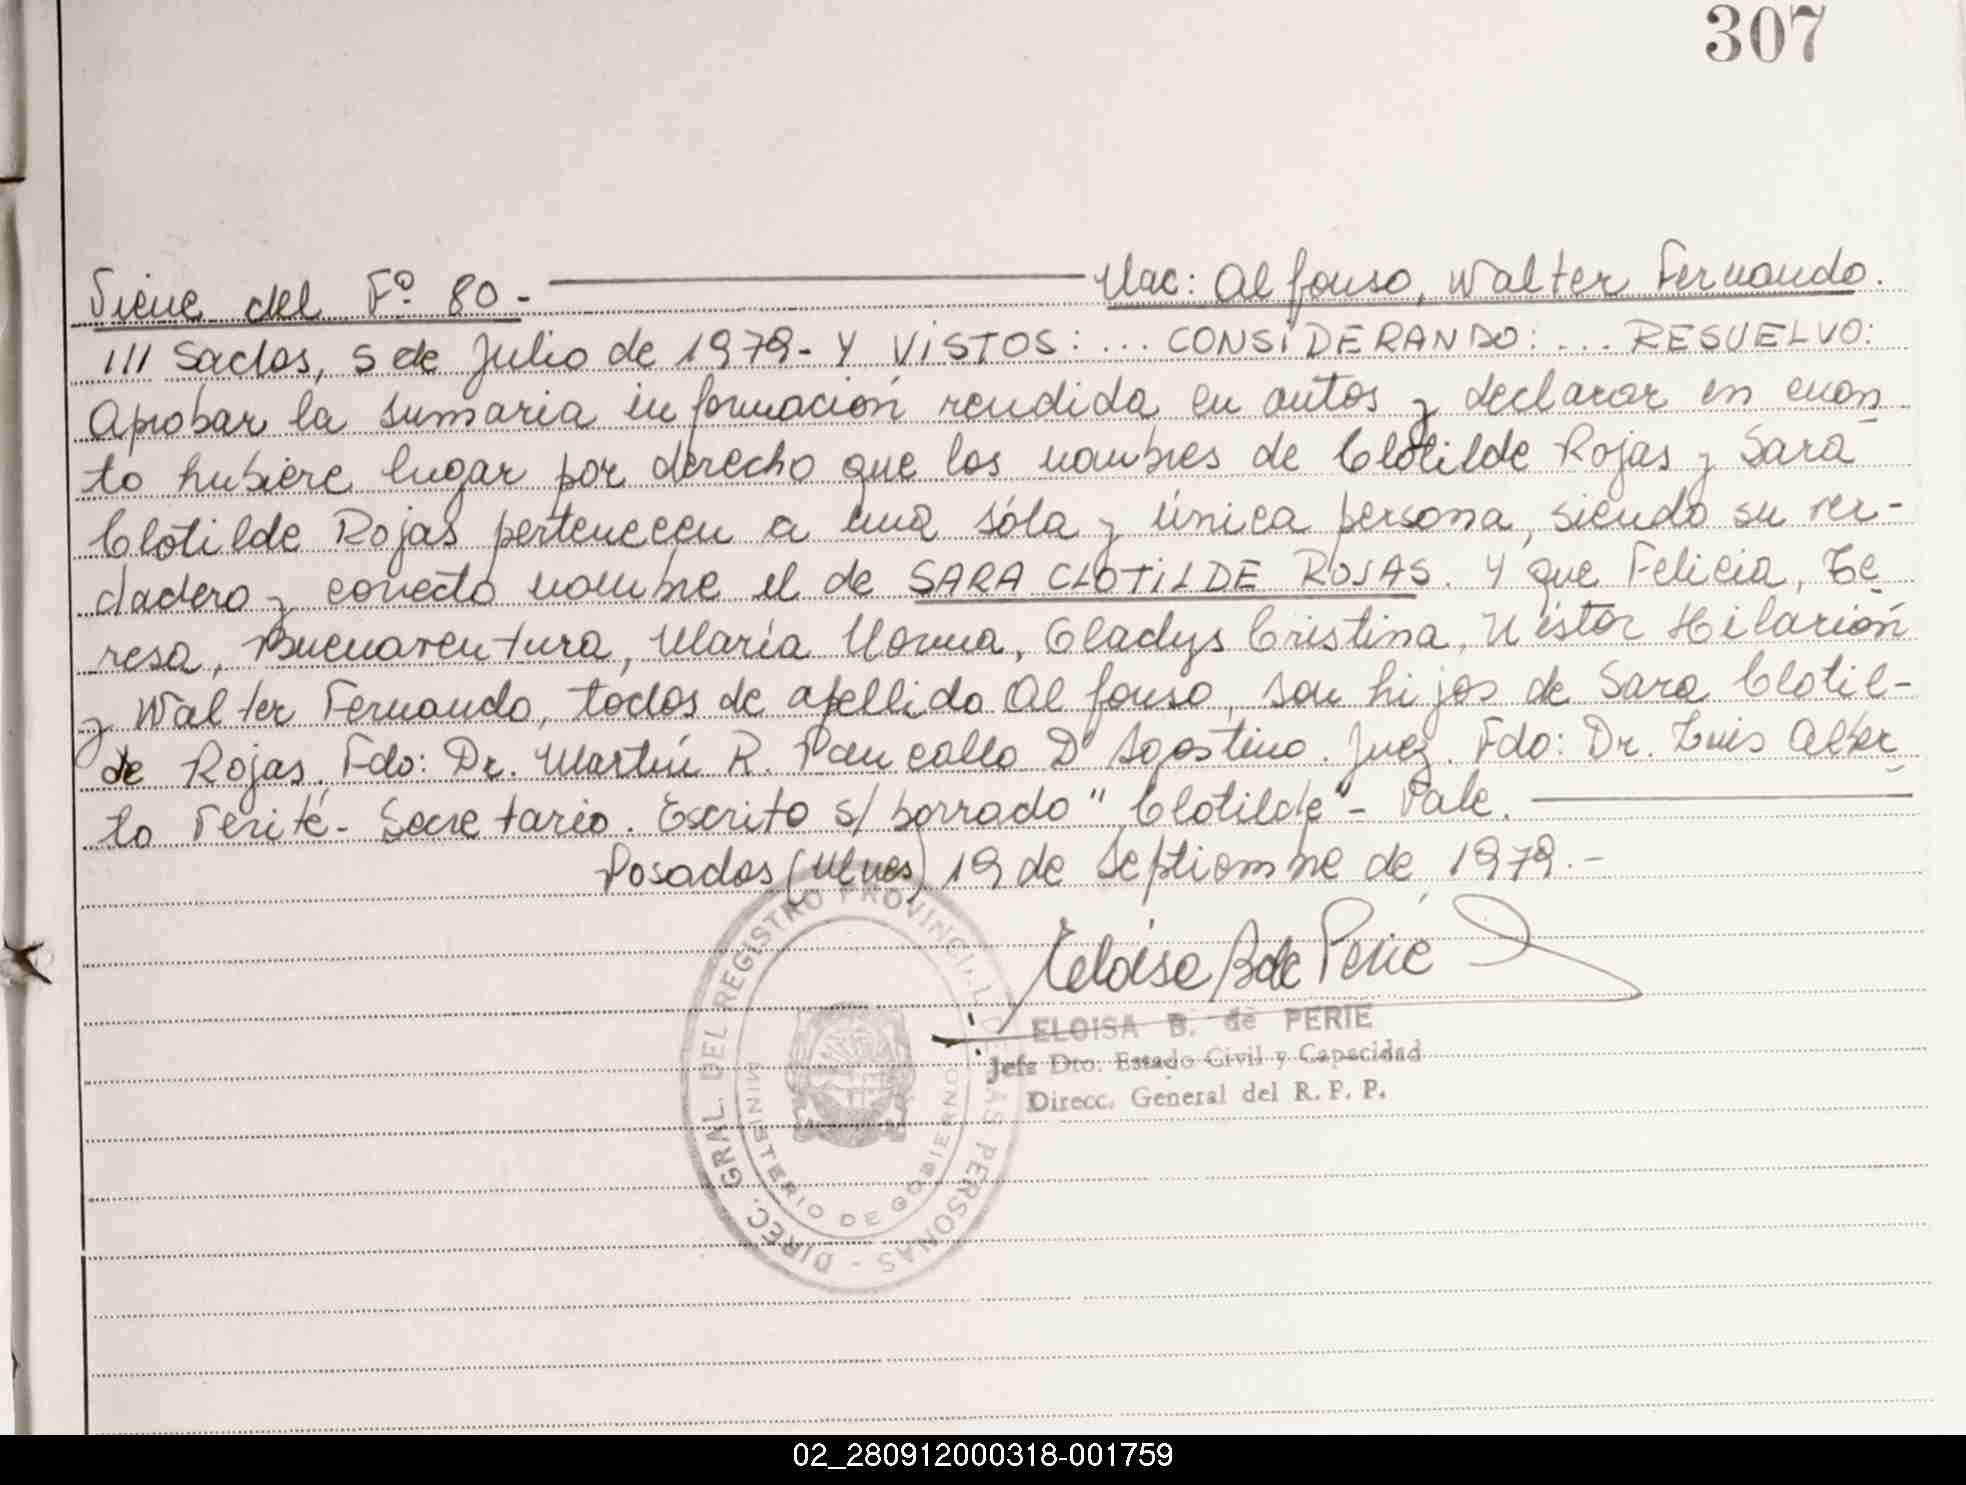 307
Viene del Fº 80.- Nac: Alfonso, Walter Fernando.
/// sadas, 5 de Julio de 1979.- Y VISTOS: ... CONSIDERANDO: ... RESUELVO:
Aprobar la sumaria información rendida en autos y declarar en cuan
to hubiere lugar por derecho que los nombres de Clotilde Rojas y Sara
Clotilde Rojas pertenecen a una sóla y única persona, siendo su ver-
dadero y correcto nombre el de SARA CLOTILDE ROJAS. Y que Felicia, Te
resa, Buenaventura, María Norma, Gladys Cristina, Néstor Hilarión
y Walter Fernando, todos de apellido Alfonso, son hijos de Sara Clotil-
de Rojas. Fdo: Dr. Martín R. D'Agostino. Juez. Fdo: Dr. Luis Alber
to Ferité- Secretario. Escrito s/ borrado "Clotilde"- Vale.
Posadas (Mnes) 19 de Septiembre de 1979.-
Eloisa B de Perié
ELOISA B. de PERIE
Jefe Dto. Estado Civil y Capacidad
Direcc. General del R. P. P.
DIREC. GRAL. DEL REGISTRO PROVINCIAL DE LAS PERSONAS -
MINISTERIO DE GOBIERNO
02_280912000318-001759